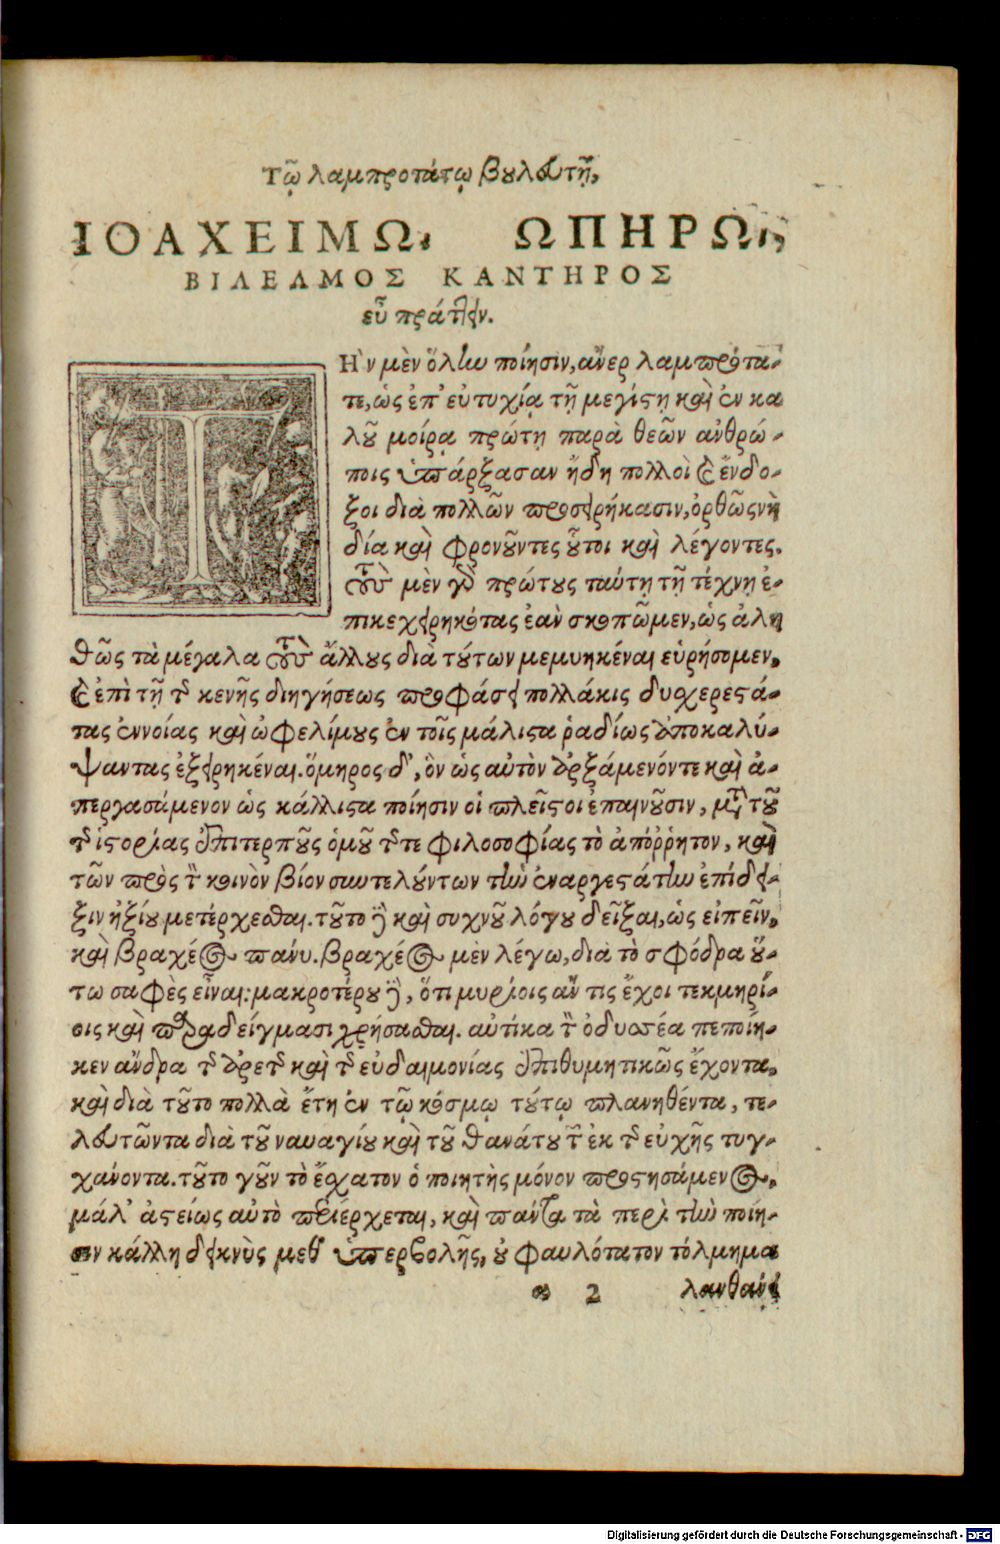 Τῷ λαμπροτάτῳ βουλευτῇ,
ΙΟΑΧΕΙΜΩι ΩΠΗΡΩι,
ΒΙΛΕΛΜΟΣ ΚΑΝΤΗΡΟΣ
εὖ πράττειν.
ΤῊν μὲν ὅλην ποίησιν, ἄνερ λαμπρότα-
τε, ὡς ἐπ’ εὐτυχίᾳ τῇ μεγίστῃ καὶ ἐν κα
λοῦ μοίρᾳ πρώτῃ παρὰ θεῶν ἀνθρώ-
ποις ὑπάρξασαν ἤδη πολλοὶ καὶ ἔνδο-
ξοι διὰ πολλῶν προσειρήκασιν, ὀρθῶς νὴ
δία καὶ φρονοῦντες οὗτοι καὶ λέγοντες.
τοὺς μὲν γὰρ πρώτους ταύτῃ τῇ τέχνῃ ἐ-
πικεχειρηκότας ἐὰν σκοπῶμεν, ὡς ἀλη
θῶς τὰ μέγαλα τοὺς ἄλλους διὰ τούτων μεμυηκέναι εὑρήσομεν,
καὶ ἐπὶ τῇ τῆς κενῆς διηγήσεως προφάσει πολλάκις δυσχερεστά-
τας ἐννοίας καὶ ὠφελίμους ἐν τοῖς μάλιστα ῥαδίως ἀποκαλύ-
ψαντας ἐξειρηκέναι. ὅμηρος δ’, ὃν ὡς αὐτὸν ἀρξάμενόν τε καὶ ἀ-
περγασάμενον ὡς κάλλιστα ποίησιν οἱ πλεῖστοι ἐπαινοῦσιν, μετὰ τοῦ
τῆς ἱστορίας ἐπιτερποῦς ὁμοῦ τῆς τε φιλοσοφίας τὸ ἀπόῤῥητον, καὶ
τῶν πρὸς τὸν κοινὸν βίον συντελούντων τὴν ἐναργεστάτην ἐπίδει-
ξιν ἠξίου μετέρχεσθαι. τοῦτο δὲ καὶ συχνοῦ λόγου δεῖξαι, ὡς εἰπεῖν,
καὶ βραχέος πάνυ. βραχέος μὲν λέγω, διὰ τὸ σφόδρα οὕ-
τω σαφὲς εἶναι: μακροτέρου δὲ, ὅτι μυρίοις ἄν τις ἔχοι τεκμηρί-
οις καὶ παραδείγμασι χρήσασθαι. αὐτίκα τὸν ὀδυσσέα πεποίη-
κεν ἄνδρα τῆς ἀρετῆς καὶ τῆς εὐδαιμονίας ἐπιθυμητικῶς ἔχοντα,
καὶ διὰ τοῦτο πολλὰ ἔτη ἐν τῷ κόσμῳ τούτῳ πλανηθέντα, τε-
λευτῶντα διὰ τοῦ ναυαγίου καὶ τοῦ θανάτου τῶν ἐκ τῆς εὐχῆς τυγ-
χάνοντα. τοῦτο γοῦν τὸ ἔσχατον ὁ ποιητὴς μόνον προστησάμενος,
μάλ’ ἀστείως αὐτὸ περιέρχεται, καὶ πάντα τὰ περὶ τὴν ποίη-
σιν κάλλη δεικνὺς μεθ’ ὑπερβολῆς, οὐ φαυλότατον τόλμημα
α 2 λανθάνει